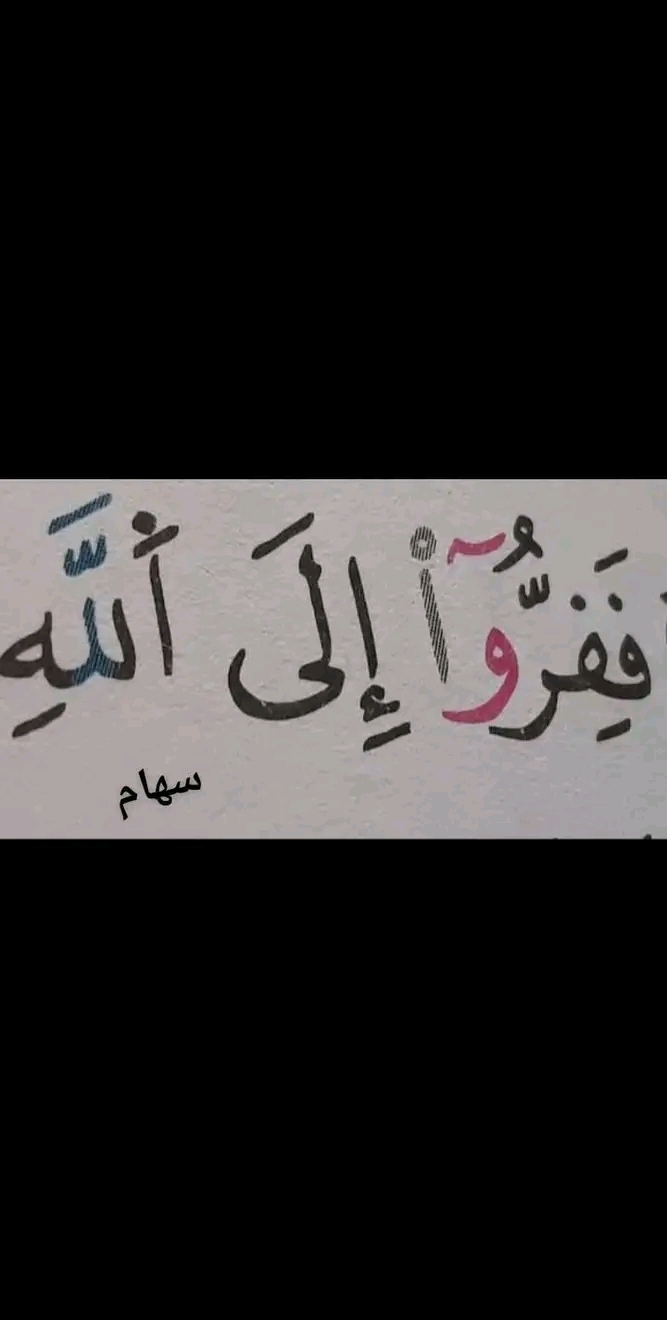 فَفِرُّوٓا۟ إِلَى ٱللَّهِ
سهام